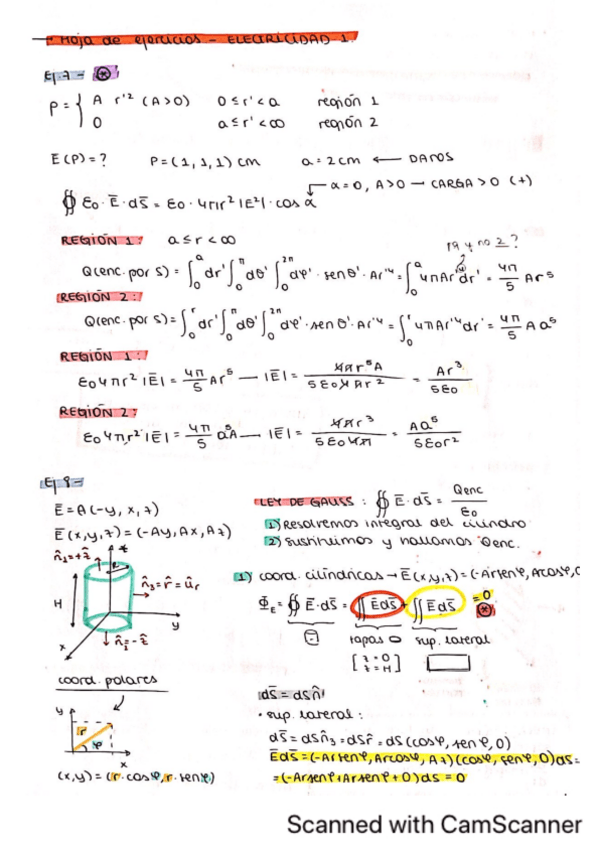 - Hoja de ejercicios - ELECTRICIDAD 1.
Ej 7 - ⊛
ρ = { A r'² (A>0) 0 ≤ r' < a región 1
0 a ≤ r' < ∞ región 2
E(P) = ? P = (1, 1, 1) cm a = 2 cm ← DATOS
α = 0, A>0 → CARGA > 0 (+)
∯ ε₀ · Ē · ds̄ = ε₀ · 4πr² |E²| · cos α
REGIÓN 1: a ≤ r < ∞
y no 2?
Q(enc. por S) = ∫₀ᵃ dr' ∫₀^π dθ' ∫₀^2π dφ' · senθ' · Ar'⁴ = ∫₀ᵃ 4πAr'⁴ dr' = 4π/5 Ar⁵
REGIÓN 2:
Q(enc. por S) = ∫₀ʳ dr' ∫₀^π dθ' ∫₀^2π dφ' · senθ' · Ar'⁴ = ∫₀ʳ 4πAr'⁴ dr' = 4π/5 A a⁵
REGIÓN 1:
ε₀ 4πr² |Ē| = 4π/5 Ar⁵ — |E| = 4πr⁵A / 5ε₀4πr² = Ar³ / 5ε₀
REGIÓN 2:
ε₀ 4πr² |Ē| = 4π/5 a⁵A — |E| = / 5ε₀4π = Aa⁵ / 5ε₀r²
Ej 8 -
Ē = A(-y, x, z)
Ē(x,y,z) = (-Ay, Ax, Az)
n̂₁ = +ẑ
z
n̂₃ = r̂ = ûr
H
y
x
n̂₂ = -ẑ
coord. polares
y
r
φ
x
(x,y) = (r·cosφ, r·senφ)
LEY DE GAUSS: ∯ Ē · ds̄ = Qenc / ε₀
1) Resolvemos integral del cilindro
2) Sustituimos y hallamos Qenc.
1) coord. cilíndricas → Ē(x,y,z) = (-Arsenφ, Arcosφ,
Φ_E = ∯ Ē · ds̄ = ∬ Ē ds̄ + ∬ Ē ds̄ = 0 ⊛
tapas sup. lateral
[z = 0
z = H]
ds̄ = ds n̂
· sup. lateral:
ds̄ = ds n̂₃ = ds r̂ = ds (cosφ, senφ, 0)
Ē ds̄ = (-Arsenφ, Arcosφ, Az)(cosφ, senφ, 0) ds =
= (-Arsenφ + Arsenφ + 0) ds = 0
Scanned with CamScanner